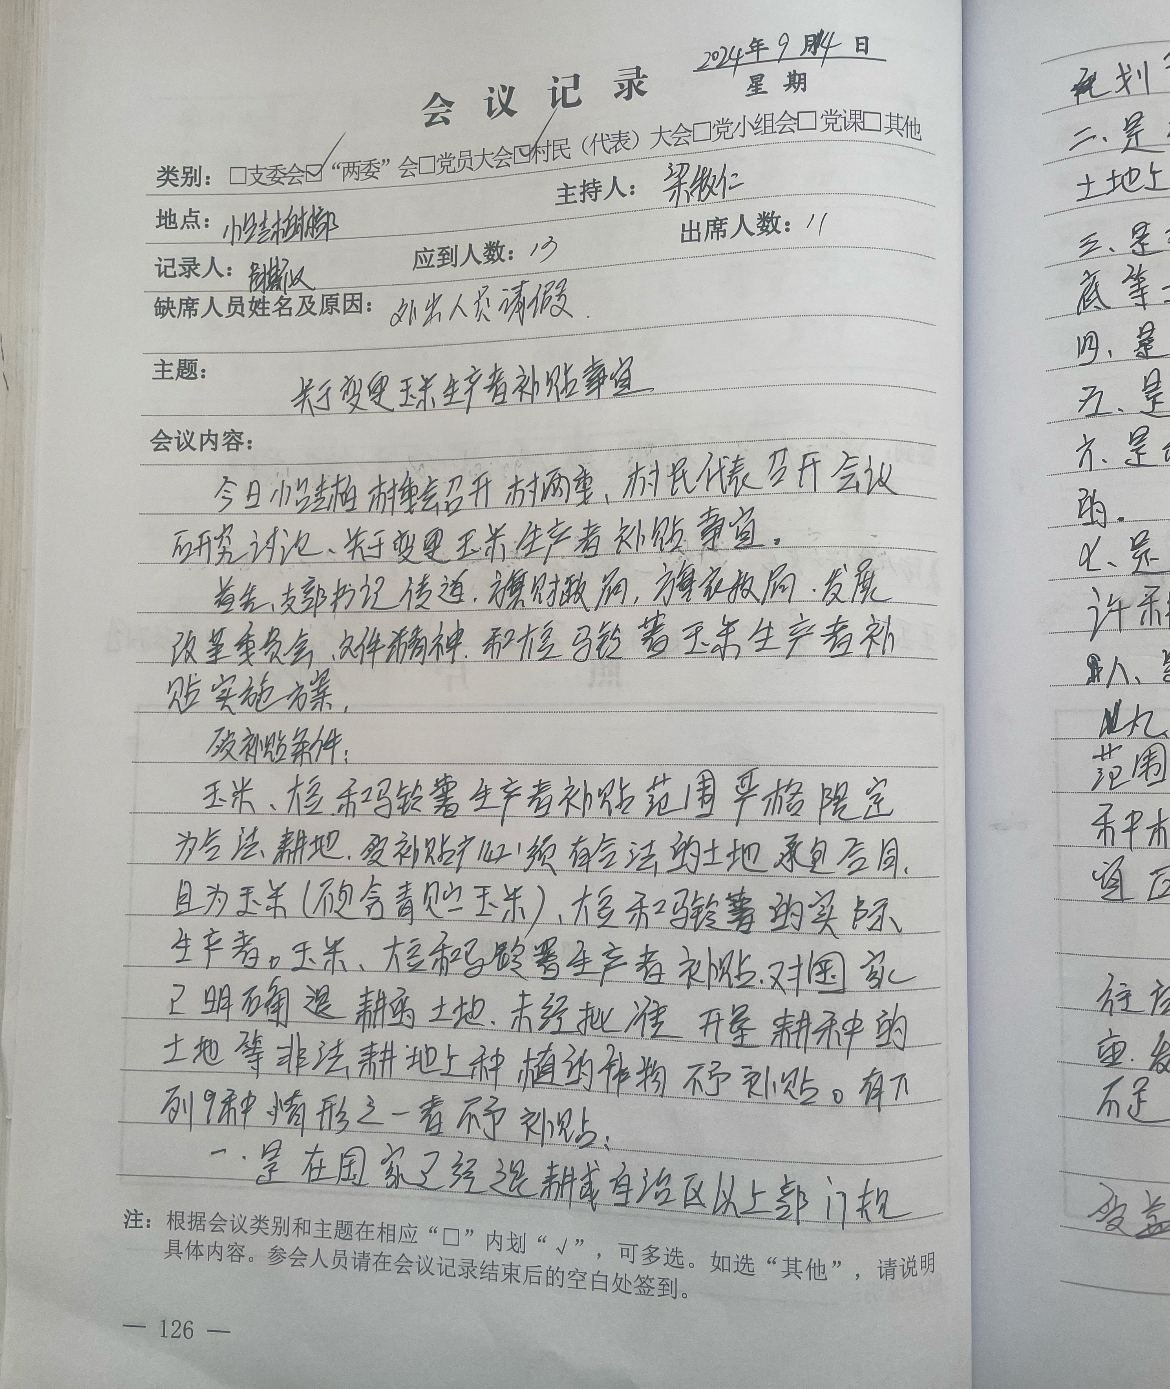 2024年9月14日
会议记录
星期
类别：□支委会☑“两委”会□党员大会☑村民（代表）大会□党小组会□党课□其他
地点：
主持人：梁牧仁
记录人：
应到人数：13
出席人数：11
缺席人员姓名及原因：外出人员请假.
主题：
关于变更玉米生产者补贴事宜
会议内容：
今日 村委会召开村两委、村民代表召开会议
研究讨论、关于变更玉米生产者补贴事宜。
首先、支部书记传达.旗财政局,旗农牧局.发展
改革委员会、文件精神.和大豆马铃薯玉米生产者补
贴实施方案,
受补贴条件:
玉米、大豆和马铃薯生产者补贴范围严格限定
为合法耕地.受补贴户必须有合法的土地承包合同.
且为玉米(包含青贮玉米)、大豆和马铃薯的实际
生产者。玉米、大豆和马铃薯生产者补贴.对国家
已明确退耕的土地.未经批准开垦耕种的
土地等非法耕地上种植的作物不予补贴。有下
列9种情形之一者不予补贴:
一.是在国家已经退耕或自治区以上部门规
注：根据会议类别和主题在相应“□”内划“√”，可多选。如选“其他”，请说明
具体内容。参会人员请在会议记录结束后的空白处签到。
— 126 —
规划
二、是
土地上
三、是
底等
四、是
五、是
六、是
的.
七、是
许
八、
九、
范围
种
不足